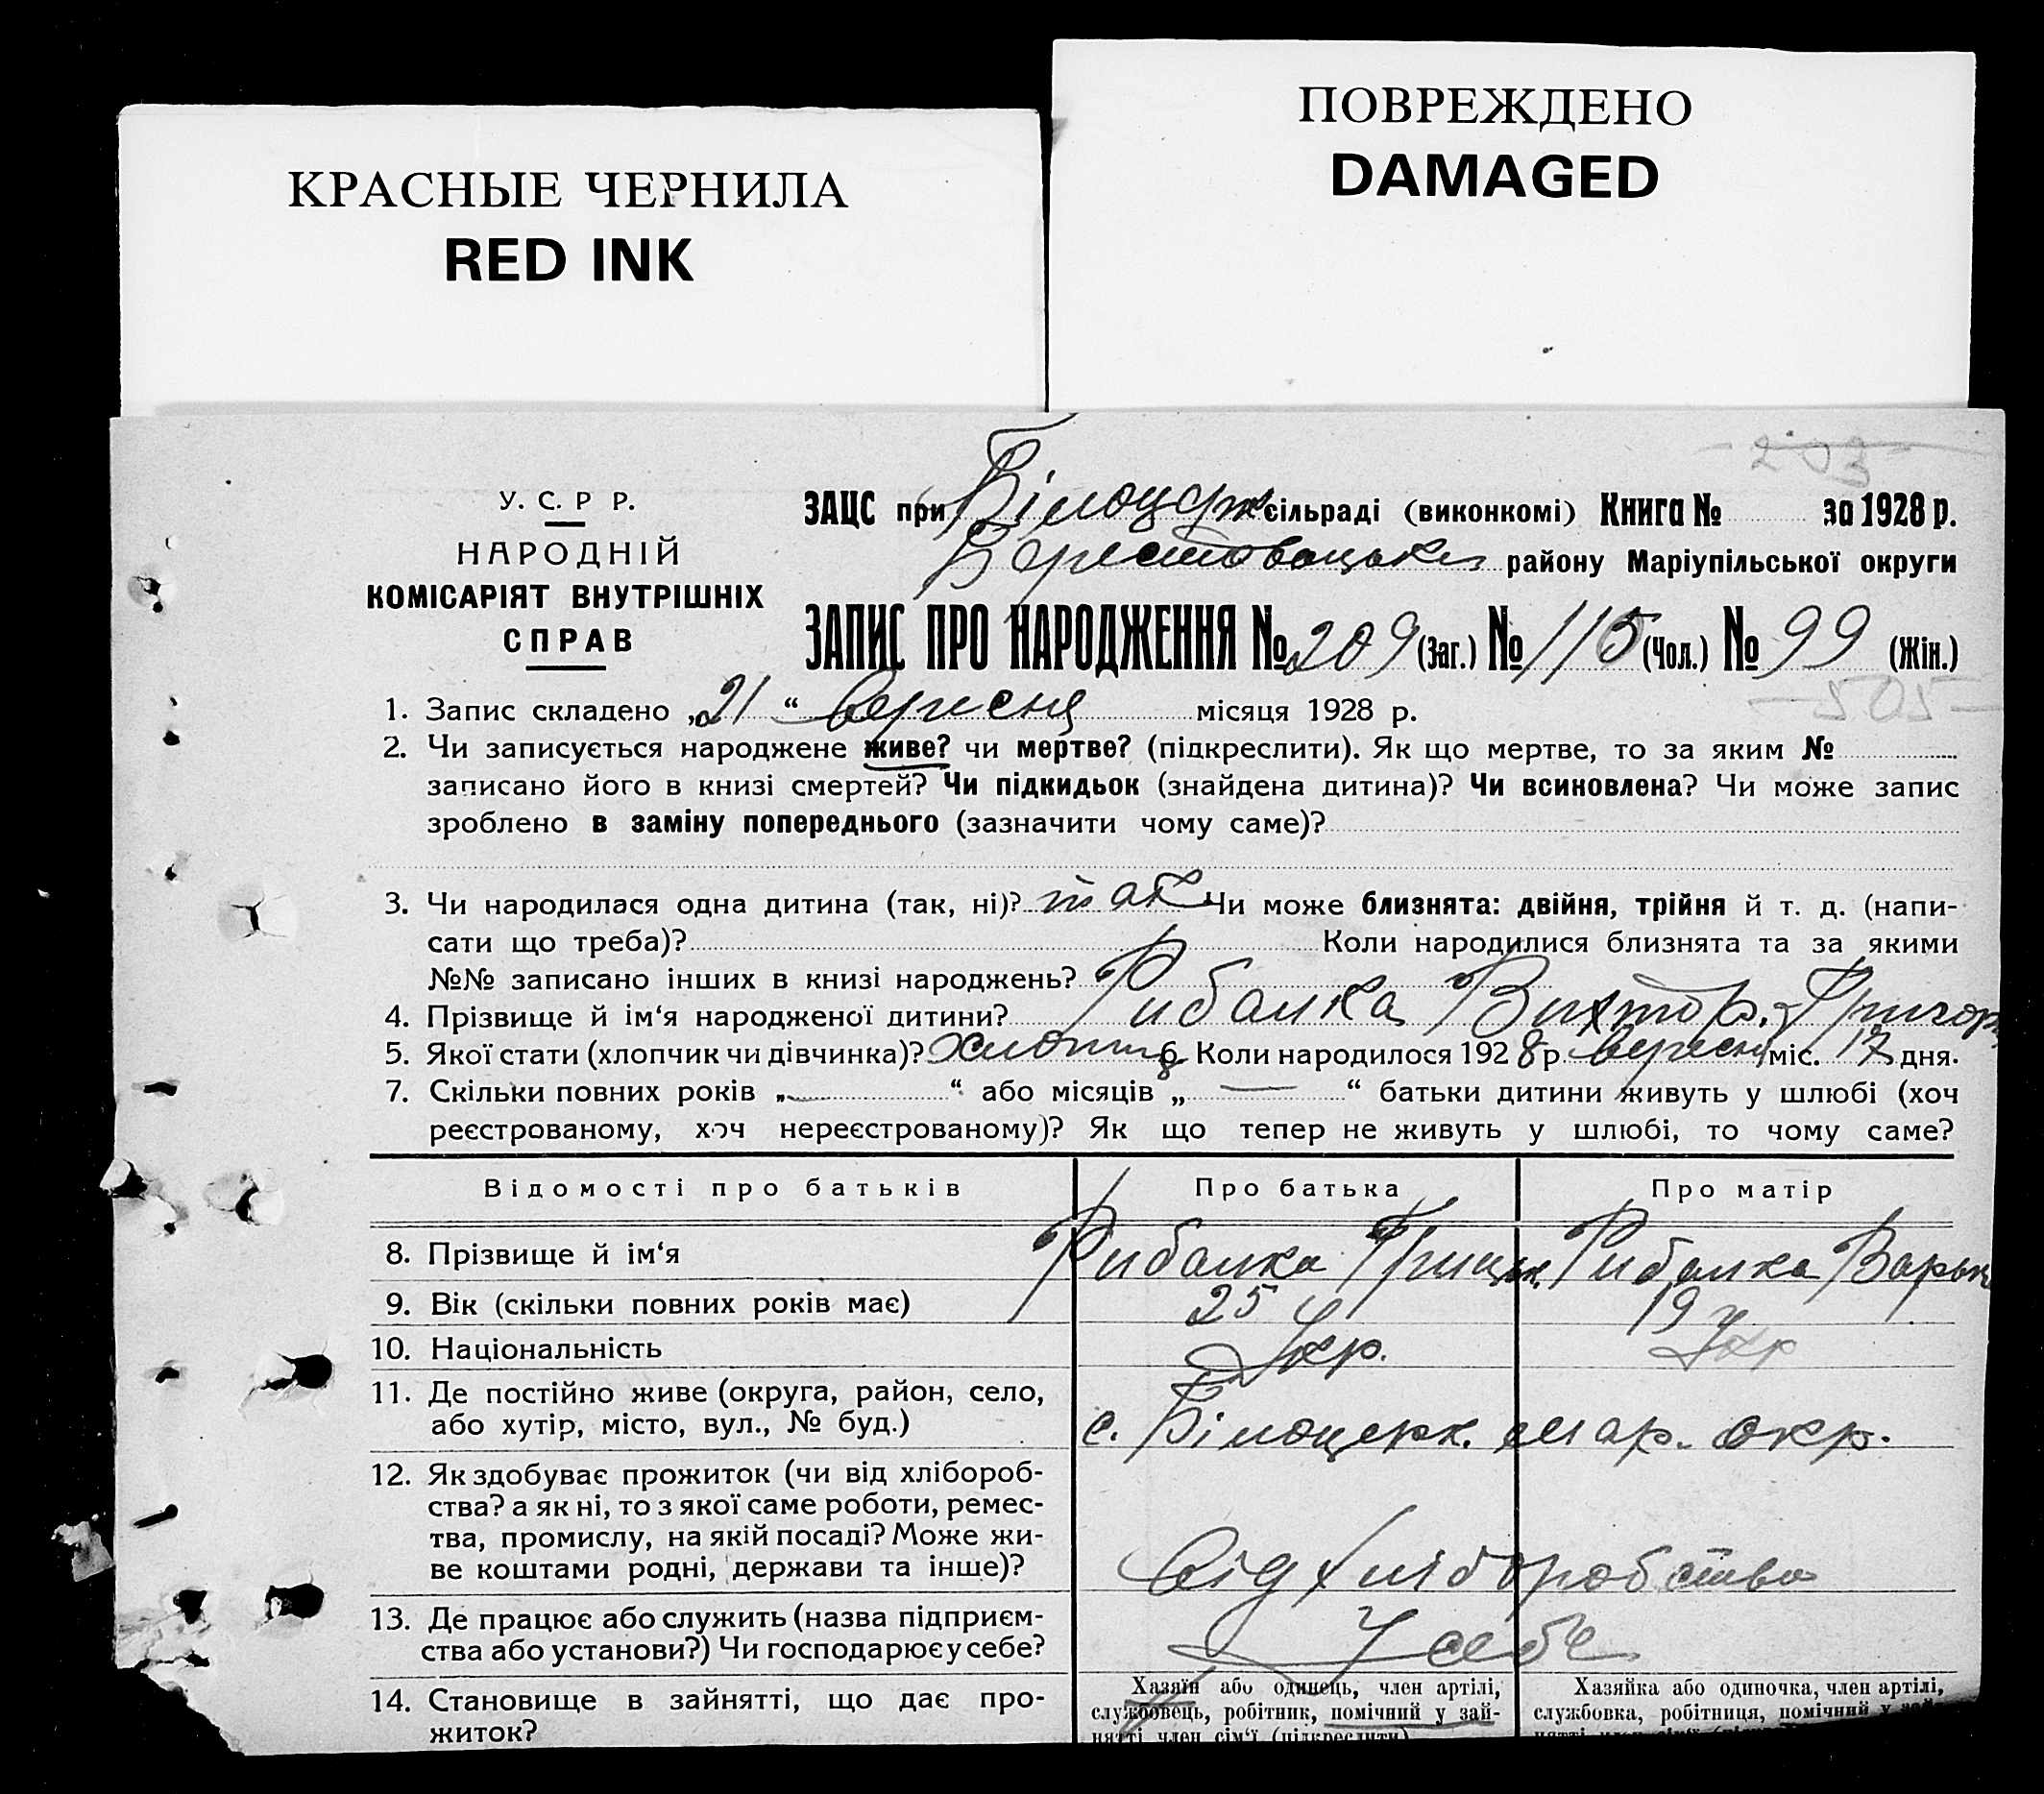 ПОВРЕЖДЕНО
DAMAGED
КРАСНЫЕ ЧЕРНИЛА
RED INK
203
У. С. Р Р.
НАРОДНІЙ
КОМІСАРІЯТ ВНУТРІШНІХ
СПРАВ
ЗАЦС при Білоцерк сільраді (виконкомі) Книга № за 1928 р.
Берестовацьк району Маріупільської округи
ЗАПИС ПРО НАРОДЖЕННЯ № 209 (Заг.) № 115 (Чол.) № 99 (Жін.)
505
1. Запис складено „21“ вересня місяця 1928 р.
2. Чи записується народжене живе? чи мертве? (підкреслити). Як що мертве, то за яким №
записано його в книзі смертей? Чи підкидьок (знайдена дитина)? Чи всиновлена? Чи може запис
зроблено в заміну попереднього (зазначити чому саме)?
3. Чи народилася одна дитина (так, ні)? так Чи може близнята: двійня, трійня й т. д. (напи-
сати що треба)? Коли народилися близнята та за якими
№№ записано інших в книзі народжень?
4. Прізвище й ім‘я народженої дитини? Рибалка Виктор. Григор
5. Якої стати (хлопчик чи дівчинка)? Хлопч 6. Коли народилось 1928 р. вересня міс. 17 дня.
7. Скільки повних років „ “ або місяців „ — “ батьки дитини живуть у шлюбі (хоч
реєстрованому, хоч нереєстрованому)? Як що тепер не живуть у шлюбі, то чому саме?
Відомості про батьків Про батька Про матір
8. Прізвище й ім‘я Рибалка Грицьк Рибалка Варьк
9. Вік (скільки повних років має) 25 19
10. Національність Укр. Укр
11. Де постійно живе (округа, район, село,
або хутір, місто, вул., № буд.) с. Білоцерк. Мар. окр.
12. Як здобуває прожиток (чи від хлібороб-
ства? а як ні, то з якої саме роботи, ремес-
тва, промислу, на якій посаді? Може жи-
ве коштами родні, держави та інше)? від хліборобства
13. Де працює або служить (назва підприєм-
ства або установи?) Чи господарює у себе? У себе
14. Становище в зайнятті, що дає про-
житок?
Хазяїн або одинець, член артілі,
службовець, робітник, помічний у зай-
нятті член сім‘ї (підкреслити)
Хазяйка або одиночка, член артілі,
службовка, робітниця, помічний у зай-